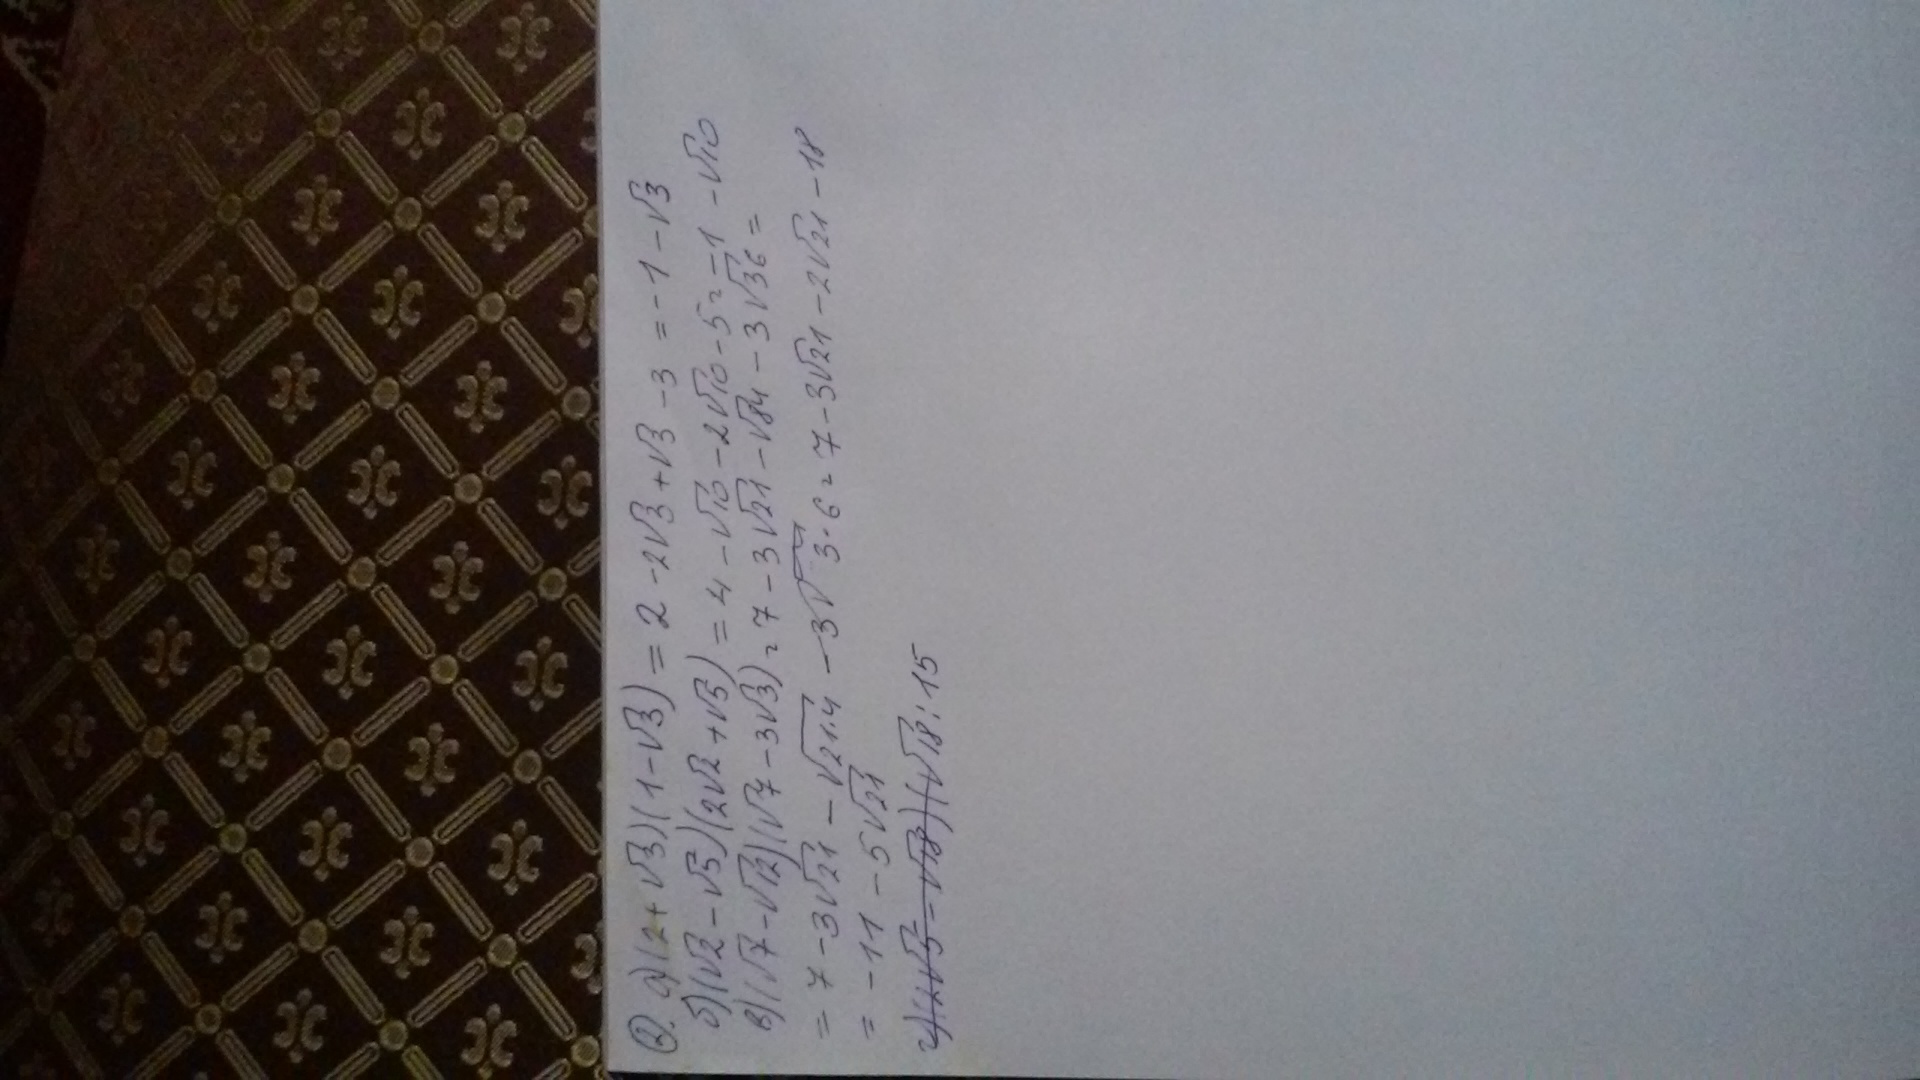 2. а) (2+√3)(1-√3) = 2 -2√3 +√3 -3 = -1 -√3
б) (√2 -√5)(2√2 +√5) = 4 -√10 -2√10 -5 = -1 -√10
в) (√7 -√12)(√7 -3√3) = 7 -3√21 -√84 -3√36 =
= 7 -3√21 -√21·4 -3√ 3·6 = 7 -3√21 -2√21 -18
= -11 -5√21
г) (2√5 -√18)(√18:15